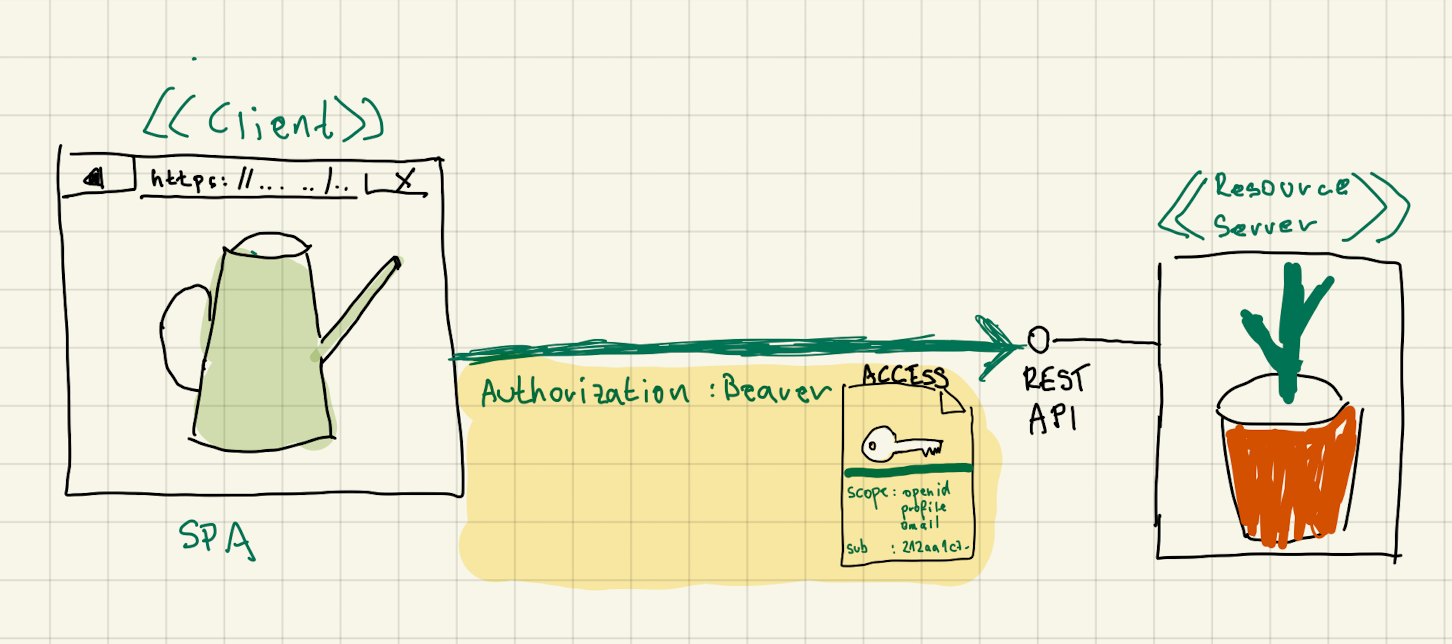 <<Client>>
https://... ../.. X
SPA
Authorization : Bearer
ACCESS
scope: openid
profile
email
sub : 212aa1c7-
REST
API
<<Resource
Server>>